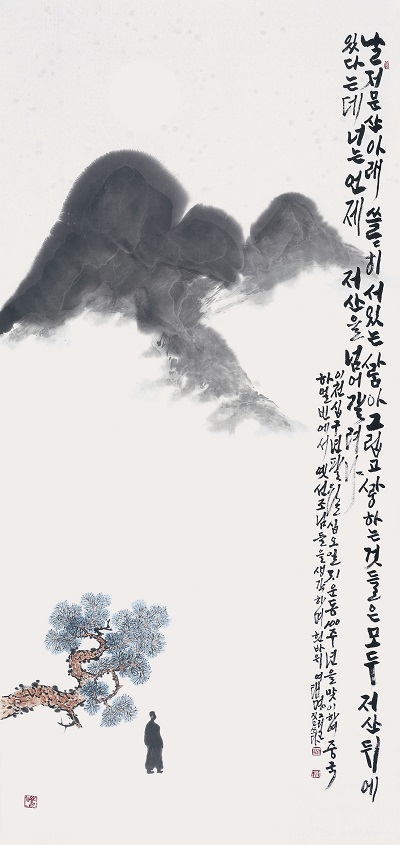 날 저문 산 아래 쓸쓸히 서있는 사람아 그립고 사랑하는 것들은 모두 저 산 뒤에
있다는데 너는 언제 저 산을 넘어 갈려나
이천십구년 팔월 십오일 운동 100주년을 맞이하여 중국
하얼빈에서 옛 선조님들을 생각하며 한바위 여태명